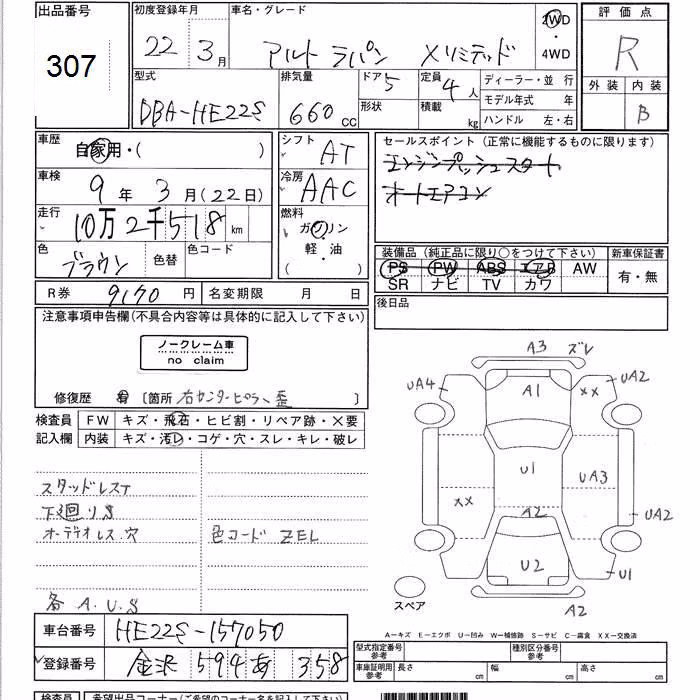 出品番号
307
初度登録年月
22 3月
車名・グレード
アルト ラパン Xリミテッド
2WD
4WD
評価点
R
外装 内装
B
型式
DBA-HE22S
排気量
660cc
ドア 5
形状
定員 4人
積載 kg
ディーラー・並 行
モデル年式 年
ハンドル 左・右
車歴
自家用・( )
シフト
AT
車検
9年 3月(22日)
冷房
AAC
走行
10万2千518 km
燃料
ガソリン
軽・油
( )
色
ブラウン
色替
色コード
R券 9170円
名変期限 月 日
セールスポイント(正常に機能するものに限ります)
エンジンプッシュスタート
オートエアコン
装備品(純正品に限り○をつけて下さい)
新車保証書
PS PW ABS エアB AW
SR ナビ TV カワ
有・無
後日品
注意事項申告欄(不具合内容等は具体的に記入して下さい)
ノークレーム車
no claim
修復歴 有 〔箇所 右センターピラー歪 〕
検査員 FW キズ・飛石・ヒビ割・リペア跡・×要
記入欄 内装 キズ・汚レ・コゲ・穴・スレ・キレ・破レ
スタッドレスT
下廻りS
オーディオレス.穴
色コード ZEL
各 A.U.S
A3 ズレ
UA4
A1
XX
UA2
U1
UA3
XX
A2
UA2
U2
U1
A2
スペア
A-キズ E-エクボ U-凹み W-補修跡 S-サビ C-腐食 XX-交換済
車台番号
HE22S-157050
登録番号
金沢 594 あ 358
型式指定番号 参考
種別区分番号 参考
車庫証明用 参考
長さ cm
幅 cm
高さ cm
検査員
希望出品コーナー(ご希望のコーナー名を記入して下さい)